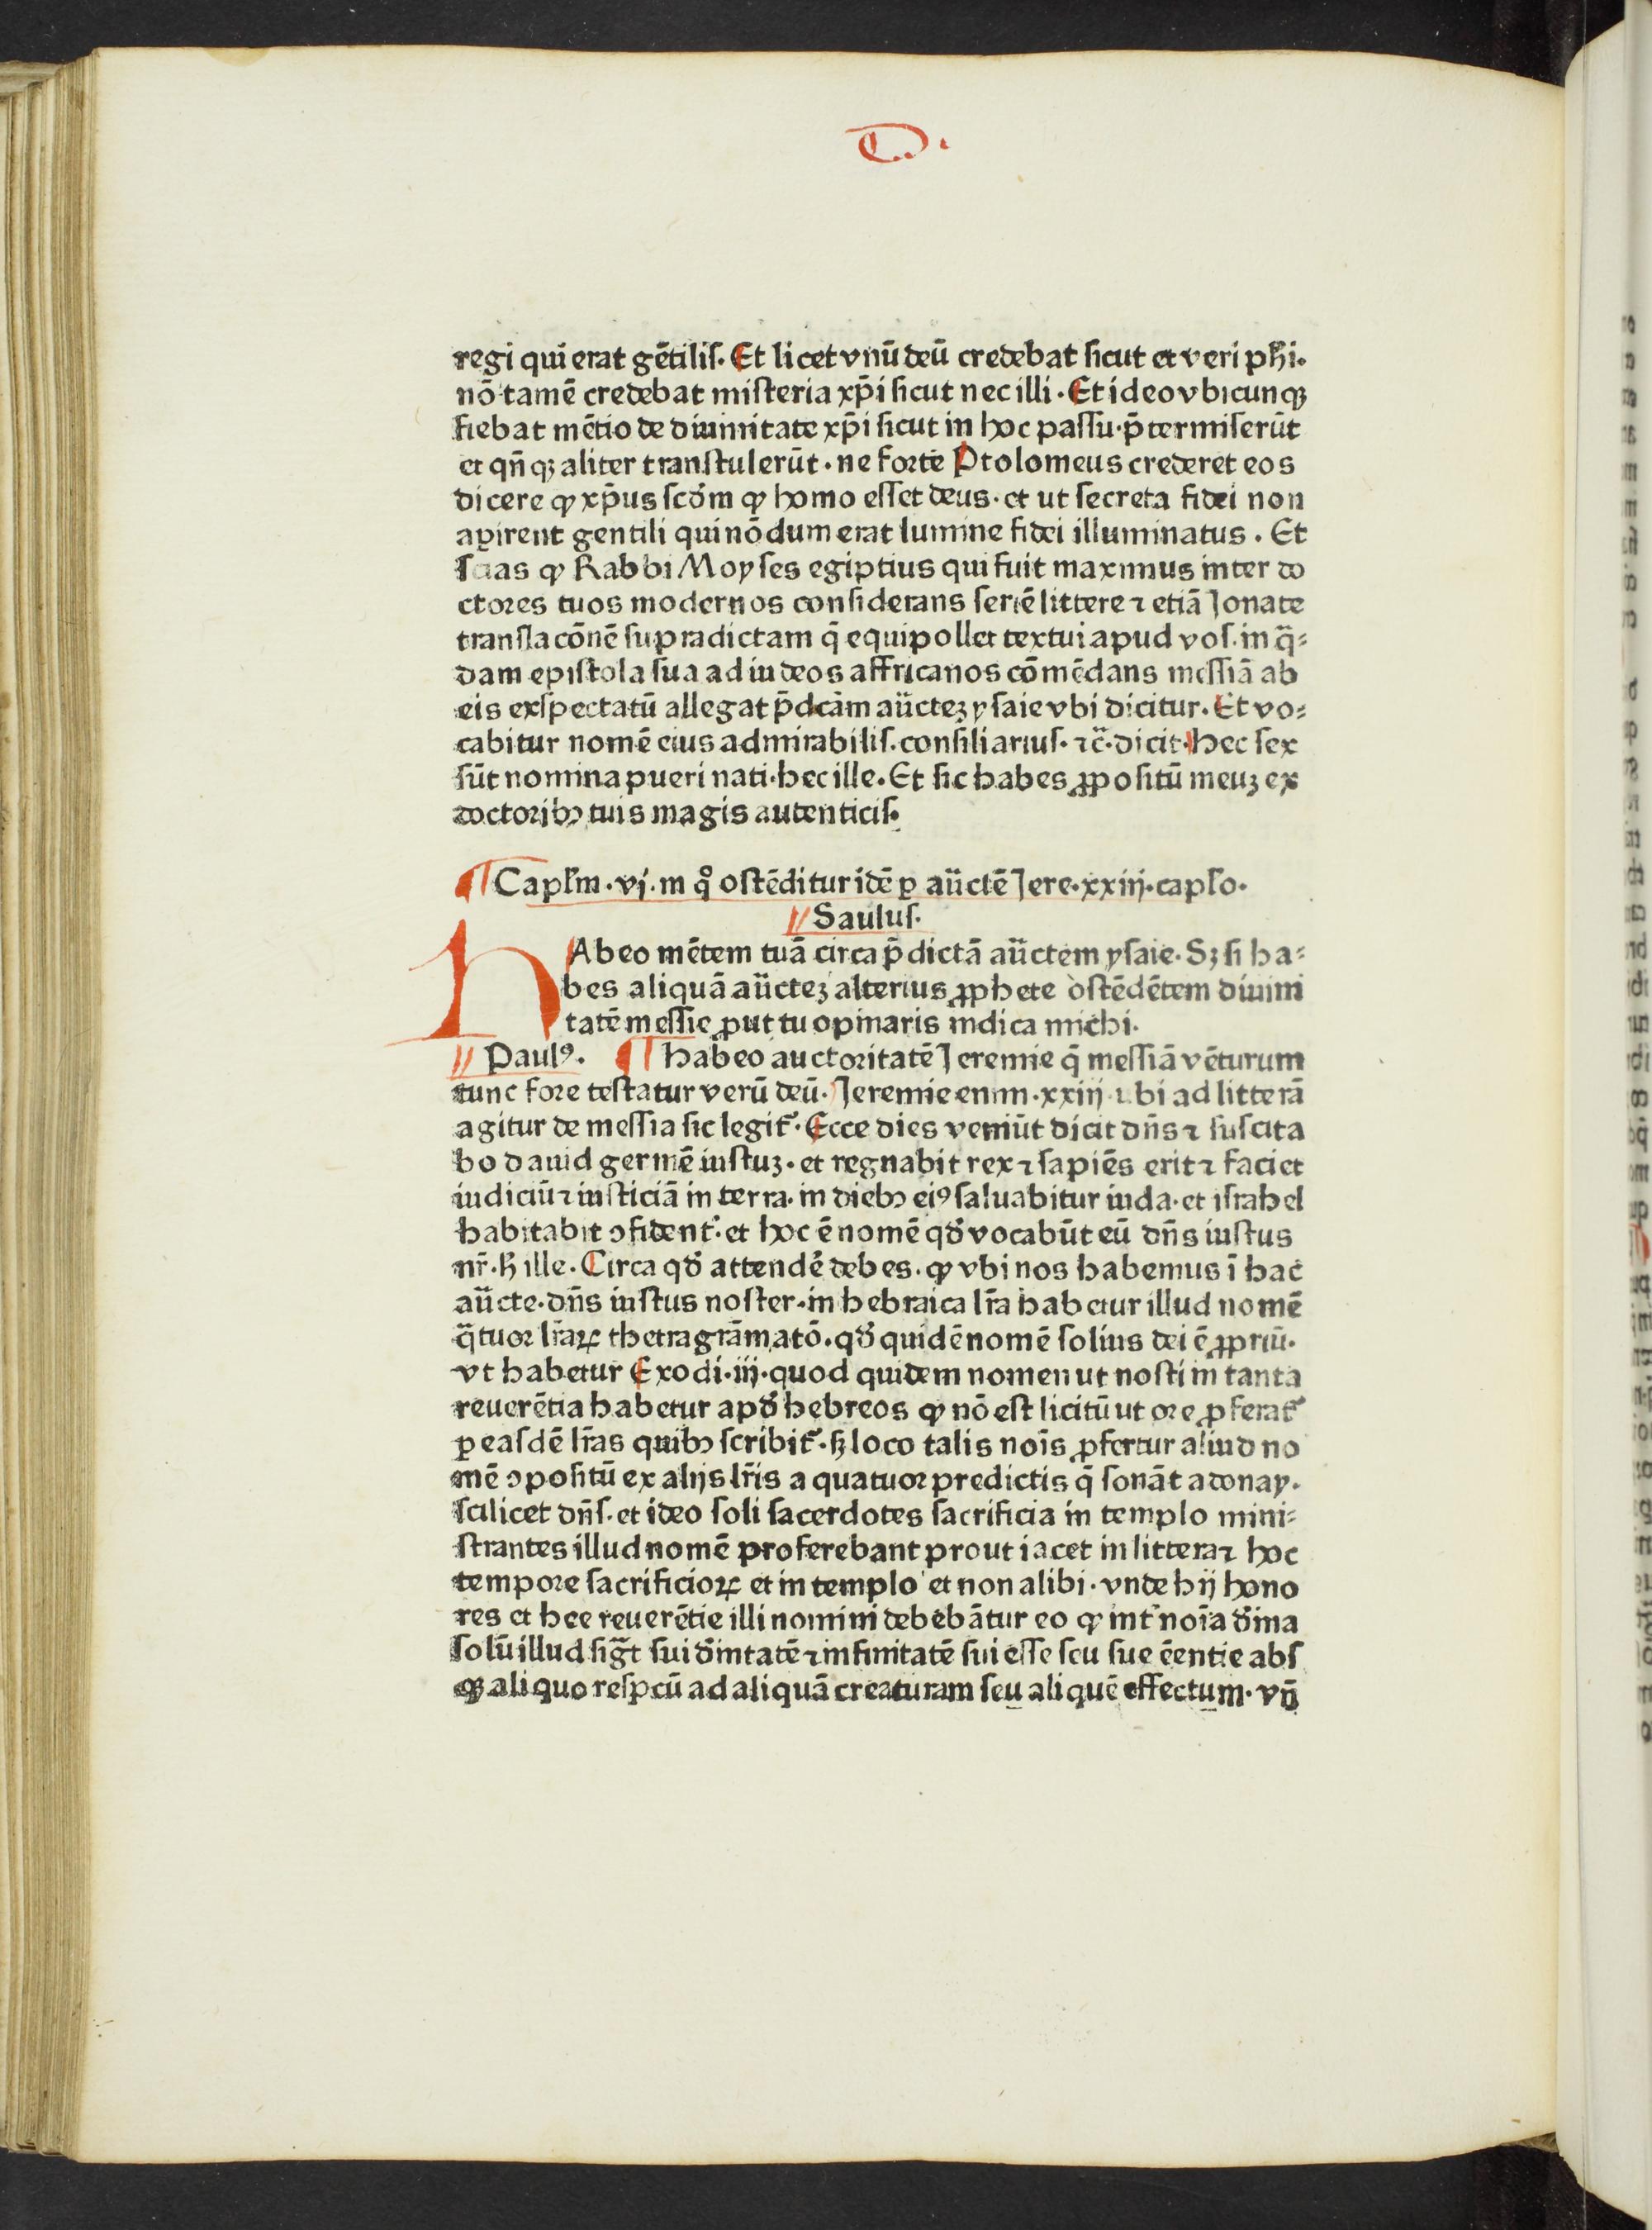 regi qui erat gētilis. Et licet vnū deū credebat sicut et veri phi.
nō tamē credebat misteria xp̄i sicut nec illi. Et ideo vbicunqꝫ
fiebat mētio de diuinitate xp̄i sicut in hoc passu. p̄termiserūt
et qn̄qꝫ aliter transtulerūt. ne forte Ptolomeus crederet eos
dicere ꝙ xp̄us scd̄m ꝙ homo esset deus. et ut secreta fidei non
aꝑirent gentili qui nōdum erat lumine fidei illuminatus. Et
scias ꝙ Rabbi Moyses egiptius qui fuit maximus inter do
ctores tuos modernos considerans seriē littere ⁊ etiā Jonate
translacōnē supradictam q̄ equipollet textui apud vos. in q̄⸗
dam epistola sua ad iudeos affricanos cōmēdans messiā ab
eis exspectatū allegat p̄dcām au̅cteꝫ ysaie vbi dicitur. Et vo⸗
cabitur nomē eius admirabilis. consiliarius. ⁊c̄. dicit. Hec sex
sūt nomina pueri nati. hec ille. Et sic habes ꝓpositū meuꝫ ex
doctoribꝫ tuis magis autenticis.
Capłm. vj. in qͦ ostēditur idē ꝑ au̅ctē Jere. xxiij. capło.
Saulus.
HAbeo mētem tuā circa p̄dictā au̅ctem ysaie. Sꝫ si ha⸗
bes aliquā au̅cteꝫ alterius ꝓphete ostēdētem diuini
tatē messie ꝓut tu opinaris indica michi.
Paulꝰ. Habeo auctoritatē Jeremie q̄ messiā vēturum
tunc fore testatur verū deū. Jeremie enim. xxiij. vbi ad litterā
agitur de messia sic legit᷑. Ecce dies veniūt dicit dn̄s ⁊ suscita
bo dauid germē iustuꝫ. et regnabit rex ⁊ sapiēs erit ⁊ faciet
iudiciū ⁊ iusticiā in terra. in diebꝫ eiꝰ saluabitur iuda. et israhel
habitabit ꝯfident᷑. et hoc ē nomē qd̄ vocabūt eū dn̄s iustus
nr̄. h̄ ille. Circa qd̄ attendē debes. ꝙ vbi nos habemus ī hac
au̅cte. dn̄s iustus noster. in hebraica lr̄a habetur illud nomē
q̄tuor lr̄aꝝ thetragrāmatō. qd̄ quidē nomē solius dei ē ꝓpriū.
vt habetur Exodi. iij. quod quidem nomen ut nosti in tanta
reuerētia habetur apd̄ hebreos ꝙ nō est licitū ut ore ꝓferat᷑
ꝑ easdē lr̄as quibꝫ scribit᷑. sꝫ loco talis noīs ꝓfertur aliud no
mē ꝯpositū ex alijs lr̄is a quatuor predictis q̄ sonāt adonay.
scilicet dn̄s. et ideo soli sacerdotes sacrificia in templo mini⸗
strantes illud nomē proferebant prout iacet in littera ⁊ hoc
tempore sacrificioꝝ et in templo et non alibi. vnde hij hono
res et hee reuerētie illi nomini debebātur eo ꝙ int᷑ noīa d̄ina
solū illud sigt̄ sui d̄initatē ⁊ infinitatē sui esse seu sue ēentie abs
qꝫ aliquo respcū ad aliquā creaturam seu aliquē effectum. vn̄